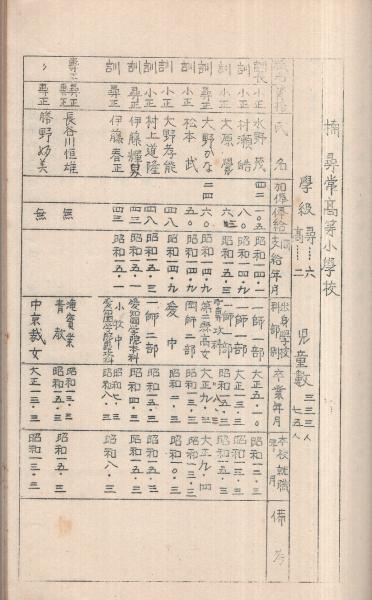 楠尋常高等小學校
學級 尋…六 兒童數 三三三人
高…二 七五人
氏名 加俸 俸給 支給年月 出身學校 科部別 卒業年月 本校就職年月 備考
小正 水野茂 四二 一〇五 昭和一四・一 一師一部 大正五・一〇 昭和一二・三
訓 小正 村瀬皓 八〇 昭和一四・九 一師一部 大正一三・三 昭和一三・三
訓 小正 大原 昭和一五・三 一師一部 昭和五・三 昭和一三・三
訓 尋正 大野かな 二四 六〇 昭和一四・九 第二縣高女 大正九・三 大正九・四
訓 小正 松本武 五〇 昭和一四・九 岡師二部 昭和一三・三 昭和一三・三
訓 小正 大野孝能 四八 昭和一四・九 愛中 昭和二・三 昭和一〇・三
訓 小正 村上道隆 四八 昭和一五・三 一師二部 昭和一四・三 昭和一四・三
訓 尋正 伊藤 四三 昭和一五・三 昭和一五・三 昭和一五・三
訓 尋正 伊藤春正 四三 昭和一五・一 小牧中 昭和七・三 昭和八・三
尋正 長谷川恒雄 無 青教 昭和一五・三 昭和一五・三
〃 尋正 勝野妙美 無 中京裁女 大正一三・三 昭和一三・三